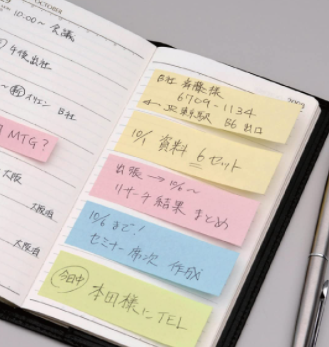 OCTOBER
10:00〜 会議
午後出社
B社
MTG?
大阪
大阪
大阪
B社 斉藤様
6709-1134
JR東京駅 B6 出口
10/1 資料 6セット
出張 → 10/6〜
リサーチ結果 まとめ
10/6 まで!
セミナー席次 作成
今日中 本田様にTEL